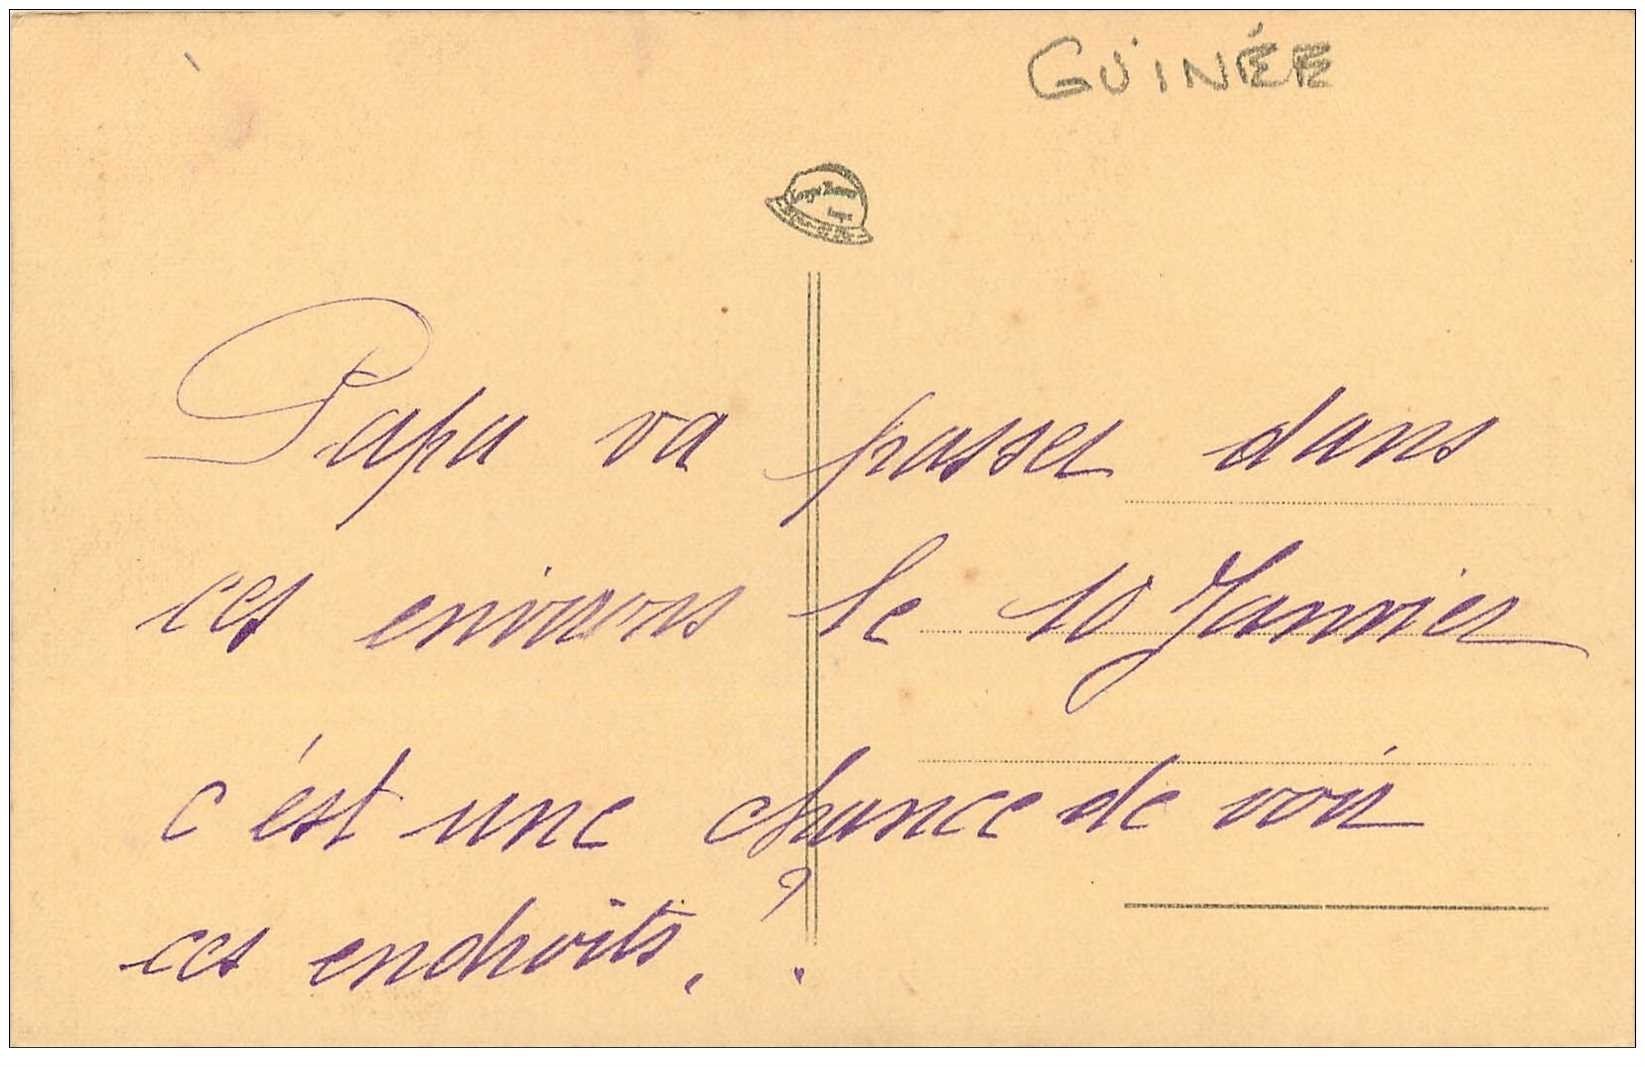 GUINÉE
Papa va passer dans
ces environs le 10 Janvier
c'est une chance de voir
ces endroits, ?